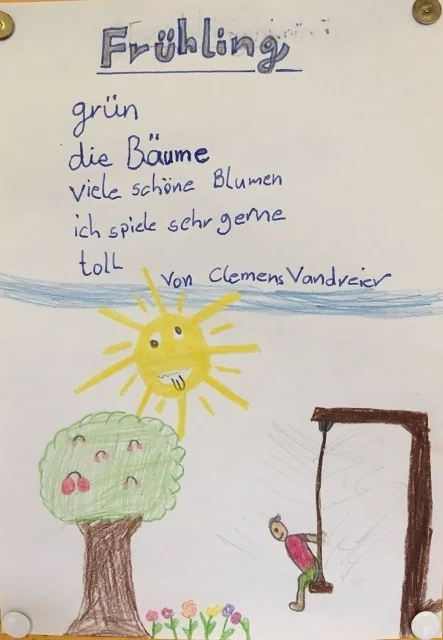 Frühling
grün
die Bäume
viele schöne Blumen
ich spiele sehr gerne
toll
Von Clemens Vandreier